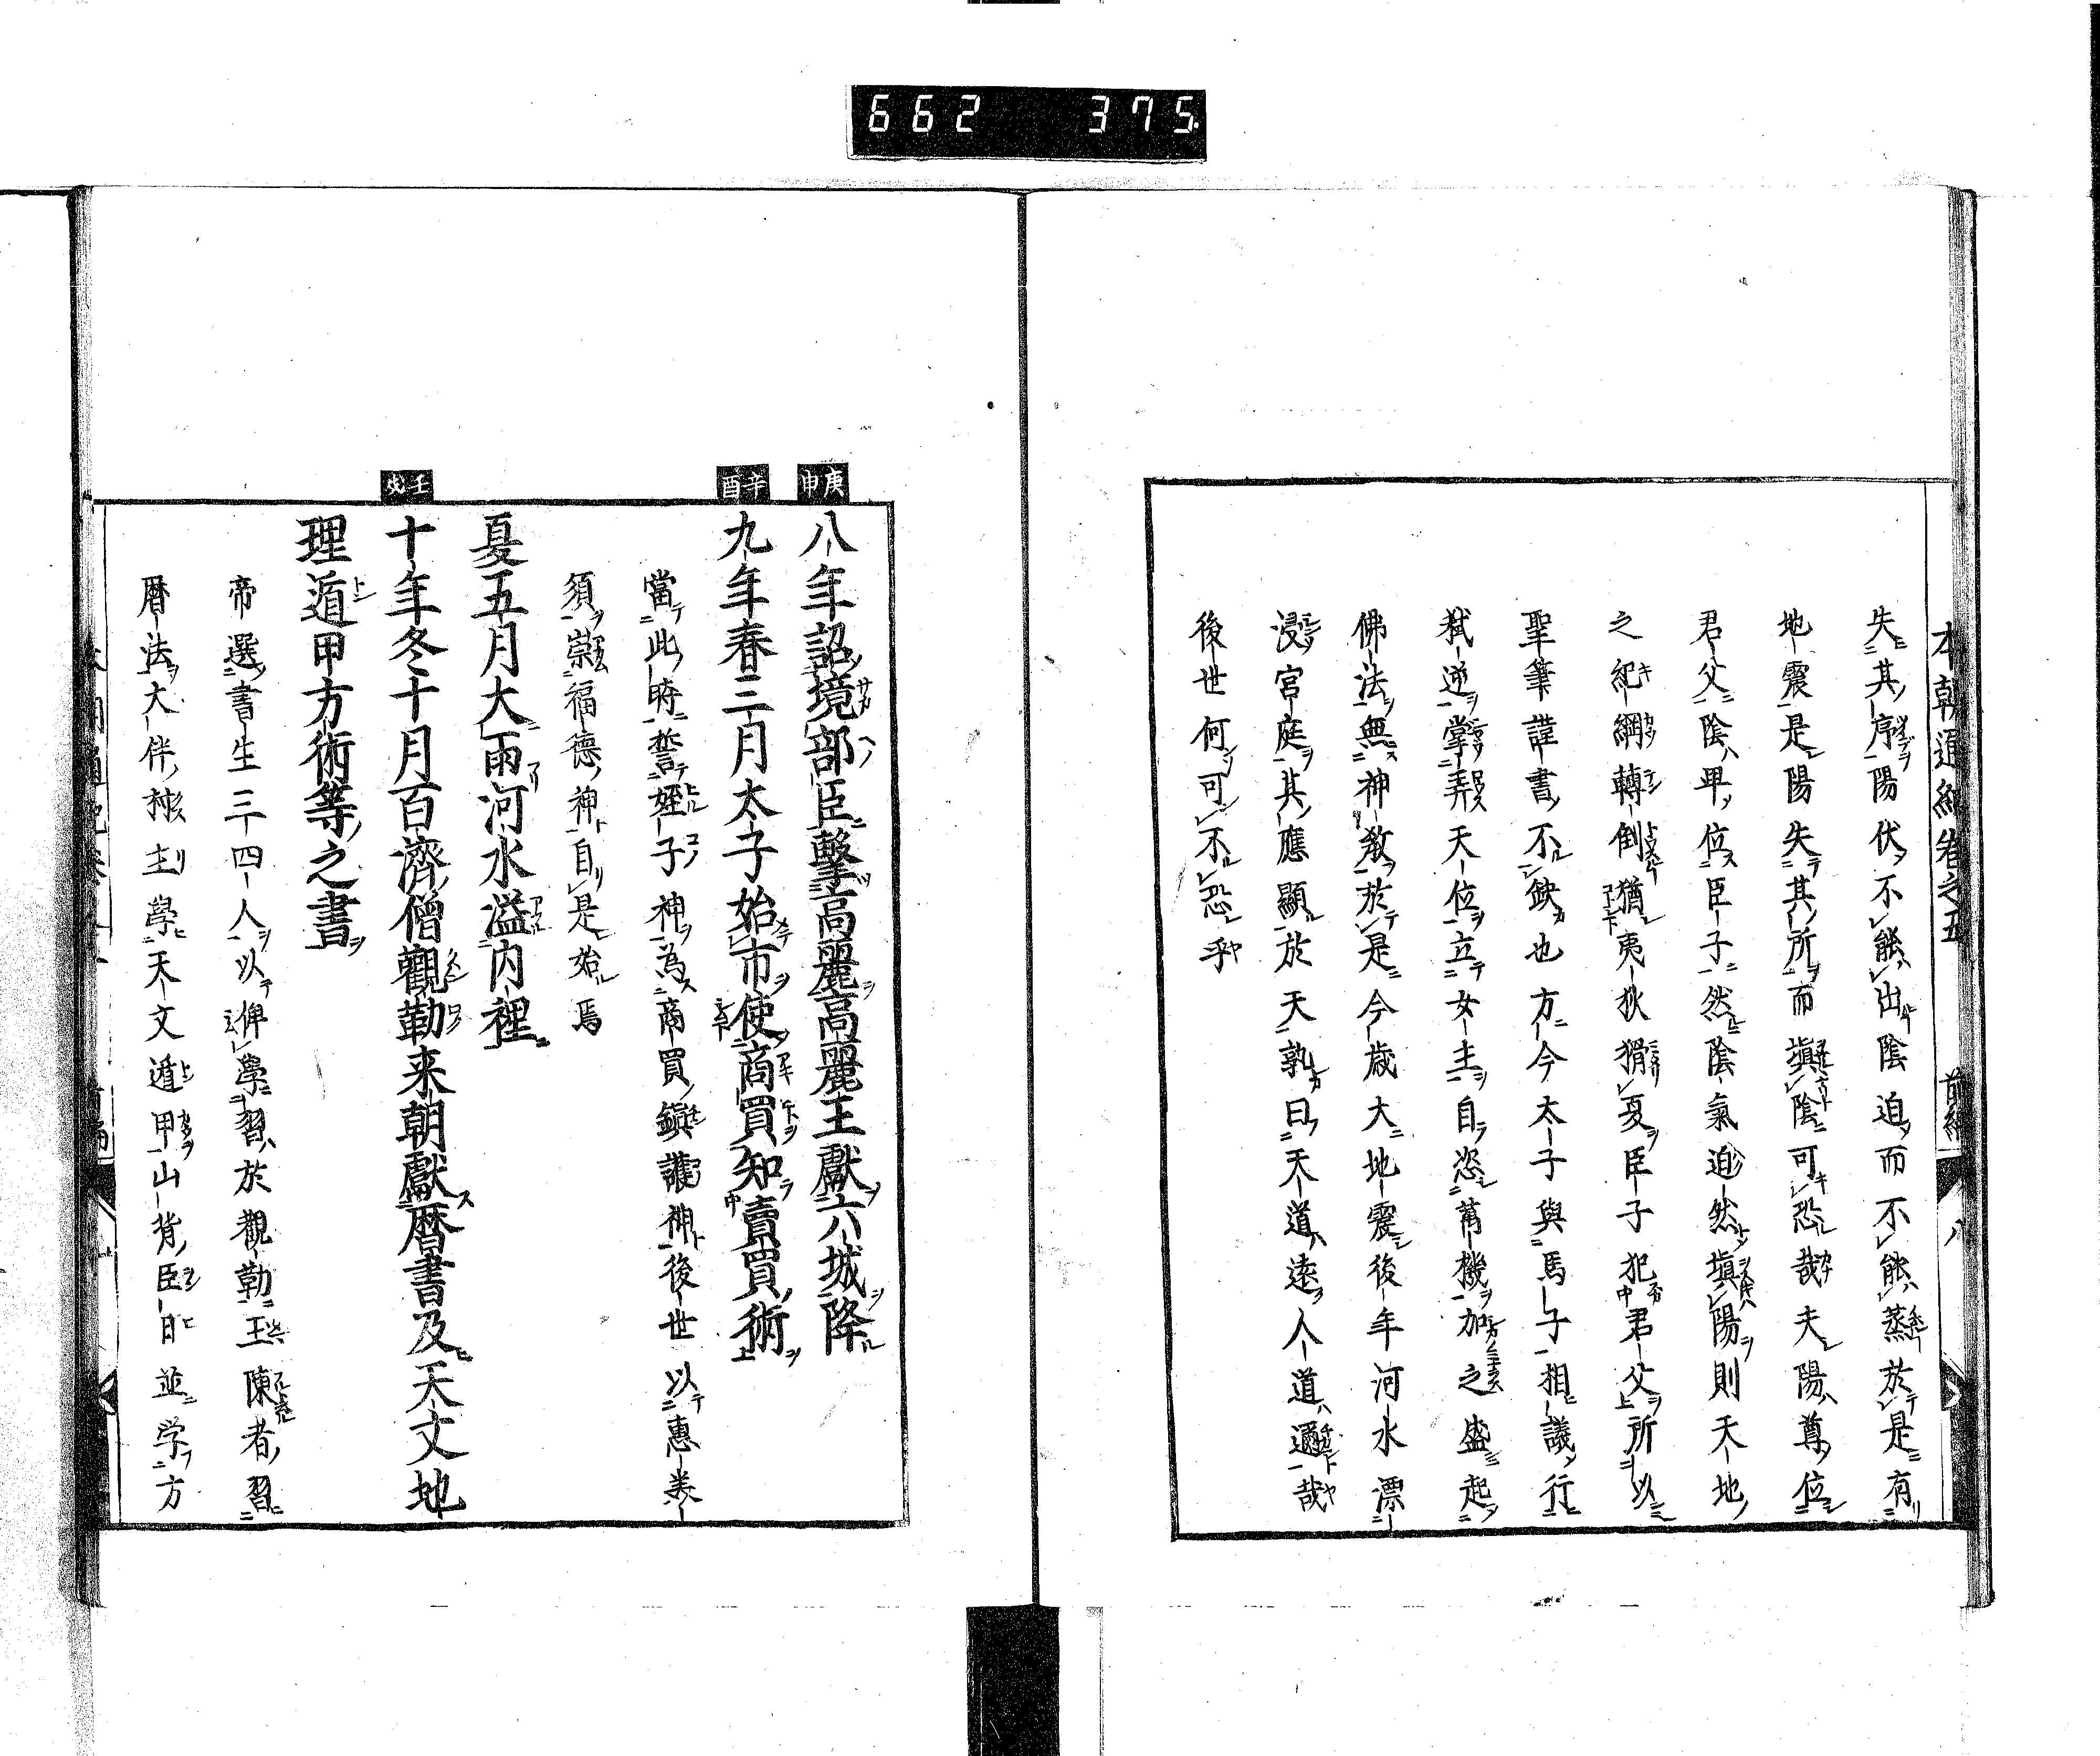 662 375
本朝通紀卷之五 前編 八
失其序陽伏不能出陰迫而不能蒸於是有
地震是陽失其所而塡陰可恐哉夫陽尊位
君父陰卑位臣子然陰氣迫然塡陽則天地
之紀綱轉倒猶夷狄猾夏臣子犯君父所以
聖筆諱書不鈌也方今太子與馬子相議行
弑逆掌弄天位立女主自恣萬機加之盛起
佛法無神敎於是今歳大地震後年河水漂
浸宮庭其應顯於天孰曰天道遠人道邇哉
後世何可不恐乎
庚申
八年詔境部臣擊高麗高麗王獻六城降
辛酉
九年春三月太子始市使商買知賣買術
當此時誓蛭子神為商買鎭護神後世以惠美
須崇福德神自是始焉
夏五月大雨河水溢内裡
壬戌
十年冬十月百濟僧觀勒来朝獻暦書及天文地
理遁甲方術等之書
帝選書生三四人以俾學習於觀勒玉陳者習
暦法大伴村主學天文遁甲山背臣日並学方